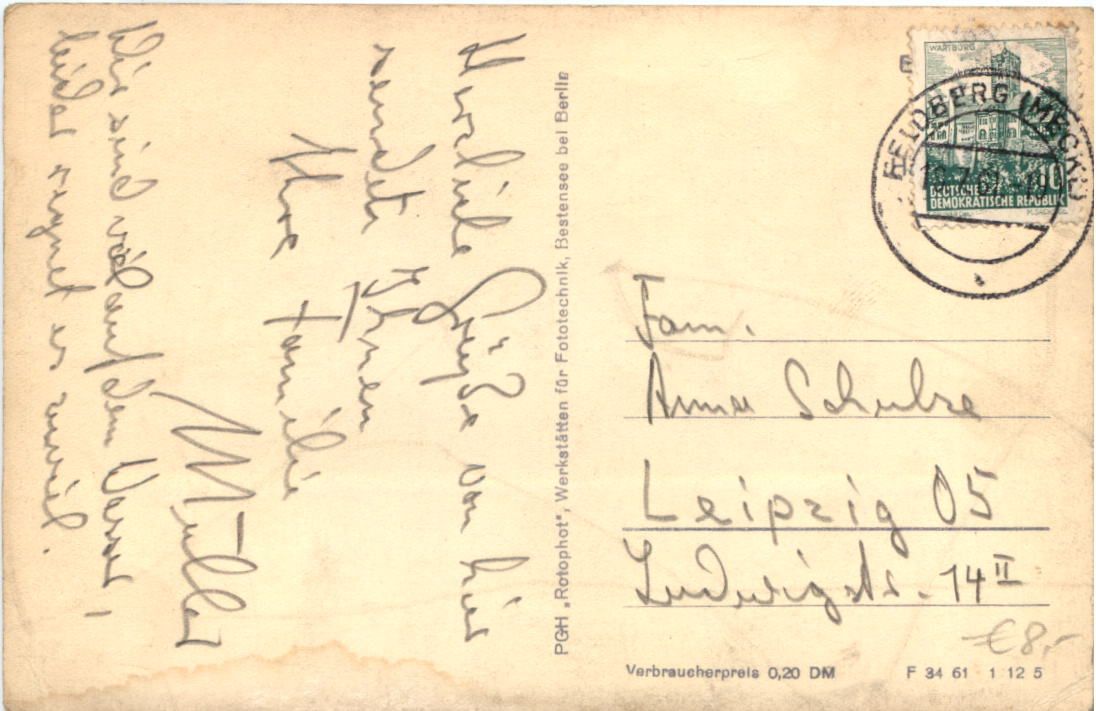 Herzliche Grüße von hier
sendet Ihnen
Ihre Familie
Müller
Wir sind viel auf dem Wasser,
leider regnet es zuviel.
PGH „Rotophot“, Werkstätten für Fototechnik, Bestensee bei Berlin
WARTBURG
FELDBERG (MECKL)
10
DEUTSCHE
DEMOKRATISCHE REPUBLIK
Fam.
Anna Schulze
Leipzig O5
Ludwigstr. 14 II
€8,-
Verbraucherpreis 0,20 DM
F 34 61 1 12 5